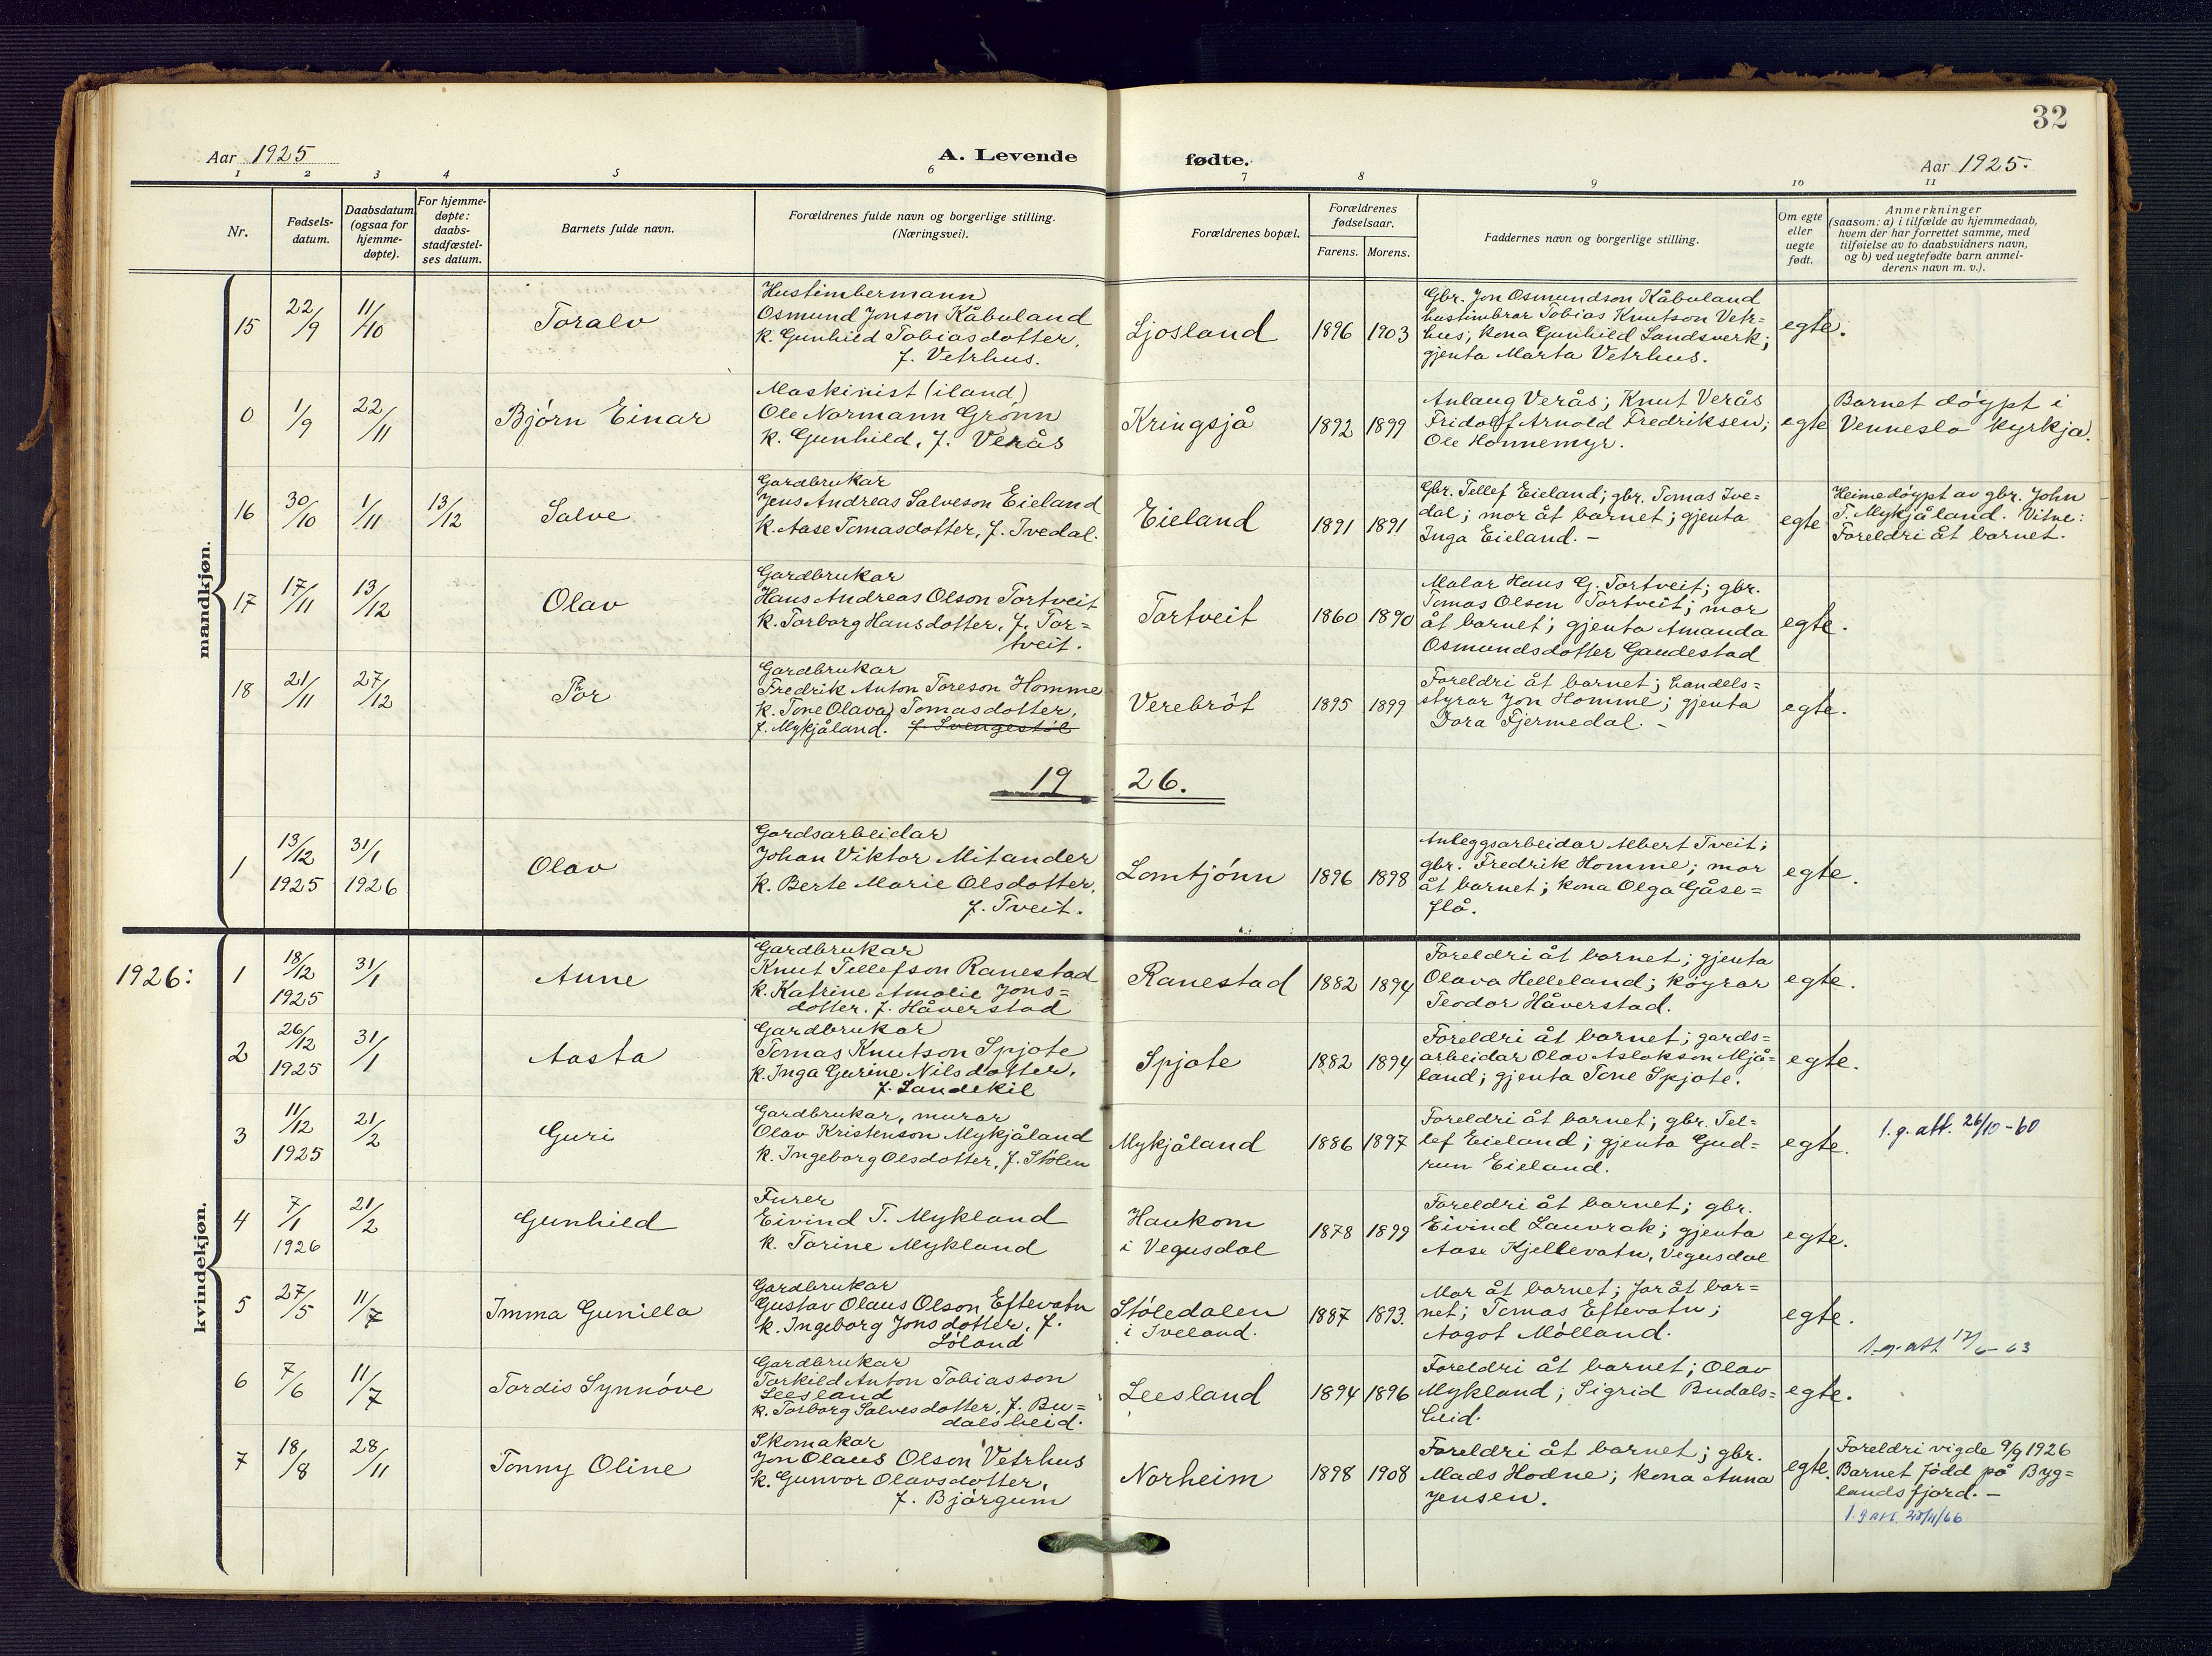 32
Aar 1925
A. Levende fødte.
Aar 1925.
1 2 3 4 5 6 7 8 9 10 11
Nr.
Fødsels-
datum.
Daabsdatum
(ogsaa for
hjemme-
døpte).
For hjemme-
døpte:
daabs-
stadfæstel-
ses datum.
Barnets fulde navn.
Forældrenes fulde navn og borgerlige stilling.
(Næringsvei).
Forældrenes bopæl.
Forældrenes
fødselsaar.
Farens. Morens.
Faddernes navn og borgerlige stilling.
Om egte
eller
uegte
født.
Anmerkninger
(saasom: a) i tilfælde av hjemmedaab,
hvem der har forrettet samme, med
tilføielse av to daabsvidners navn,
og b) ved uegtefødte barn anmel-
derens navn m. v.).
mandkjøn.
15
22/9
11/10
Toralv
Hustimbermann
Osmund Jonson Kåbuland
k. Gunhild Tobiasdotter,
f. Vetrhus.
Ljosland
1896 1903
Gbr. Jon Osmundson Kåbuland
hustimbrar Tobias Knutson Vetr=
hus; kona Gunhild Landsverk;
gjenta Marta Vetrhus.
egte.
0
1/9
22/11
Bjørn Einar
Maskinist (iland)
Ole Normann Grønn
k. Gunhild, f. Verås
Kringsjå
1892 1899
Aulaug Verås; Knut Verås
Fridolf Arnold Fredriksen;
Ole Honnemyr.
egte
Barnet døypt i
Vennesla kyrkja.
16
30/10
1/11
13/12
Salve
Gardbrukar
Jens Andreas Salveson Eieland
k. Aase Tomasdotter, f. Ivedal.
Eieland
1891 1891
Gbr. Tellef Eieland; gbr. Tomas Ive=
dal; mor åt barnet; gjenta
Inga Eieland. -
egte
Heimedøypt av gbr. John
T. Mykjåland. Vitne:
Foreldri åt barnet.
17
17/11
13/12
Olav
Gardbrukar
Hans Andreas Olson Tortveit
k. Torborg Hansdotter, f. Tor=
tveit.
Tortveit
1860 1890
Malar Hans G. Tortveit; gbr.
Tomas Olsen Tortveit; mor
åt barnet; gjenta Amanda
Osmundsdotter Gaudestad
egte.
18
21/11
27/12
Thor
Gardbrukar
Fredrik Anton Toreson Homme
k. Tone Olava Tomasdotter,
f. Mykjåland. f. Svengestøl
Verebrøt
1895 1899
Foreldri åt barnet; handels=
styrar Jon Homme; gjenta
Tora Fjermedal. -
egte.
1926.
1
13/12
1925
31/1
1926
Olav
Gardsarbeidar
Johan Viktor Mitander
k. Berte Marie Olsdotter,
f. Tveit.
Lomtjønn
1896 1898
Anleggsarbeidar Albert Tveit;
gbr. Fredrik Homme; mor
åt barnet; kona Olga Gåse=
flå.
egte.
1926:
kvindekjøn.
1
18/12
1925
31/1
Anne
Gardbrukar
Knut Tellefson Ranestad
k. Katrine Amalie Jons=
dotter. f. Håverstad
Ranestad
1882 1894
Foreldri åt barnet; gjenta
Olava Helleland; køyrar
Teodor Håverstad.
egte.
2
26/12
1925
31/1
Aasta
Gardbrukar
Tomas Knutson Spjote
k. Inga Gurine Nilsdotter,
f. Landekil
Spjote
1882 1894
Foreldri åt barnet; gards=
arbeidar Olav Aslakson Mjå=
land; gjenta Tone Spjote.
egte.
3
11/12
1925
21/2
Guri
Gardbrukar, murar
Olav Kristenson Mykjåland
k. Ingeborg Olsdotter, f. Stølen
Mykjåland
1886 1897
Foreldri åt barnet; gbr. Tel=
lef Eieland; gjenta Gud=
run Eieland.
egte.
1. g. att. 26/10-60
4
7/1
1926
21/2
Gunhild
Furer
Eivind T. Mykland
k. Torine Mykland
Haukom
i Vegusdal
1878 1899
Foreldri åt barnet; gbr.
Eivind Lauvrak; gjenta
Aase Kjellevatn, Vegusdal
egte.
5
27/5
11/7
Imma Gunilla
Gardbrukar
Gustav Olaus Olson Eftevatn
k. Ingeborg Jonsdotter, f.
Løland
Støledalen
i Iveland.
1887 1893.
Mor åt barnet; far åt bar=
net; Tomas Eftevatn;
Aagot Mølland.
egte.
1. g. att 12/6-63
6
7/6
11/7
Tordis Synnøve
Gardbrukar
Torkild Anton Tobiasson
Leesland
k. Torborg Salvesdotter, f. Bu=
dalsheid.
Leesland
1894 1896
Foreldri åt barnet; Olav
Mykland; Sigrid Budals=
heid.
egte.
7
18/8
28/11
Tonny Oline
Skomakar
Jon Olaus Olson Vetrhus
k. Gunvor Olavsdotter,
f. Bjørgum
Norheim
1898 1908
Foreldri åt barnet; gbr.
Mads Hodne; kona Anna
Jensen.
egte.
Foreldri vigde 9/9 1926
Barnet fødd på Byg=
landsfjord. -
1. g att. 28/11/66